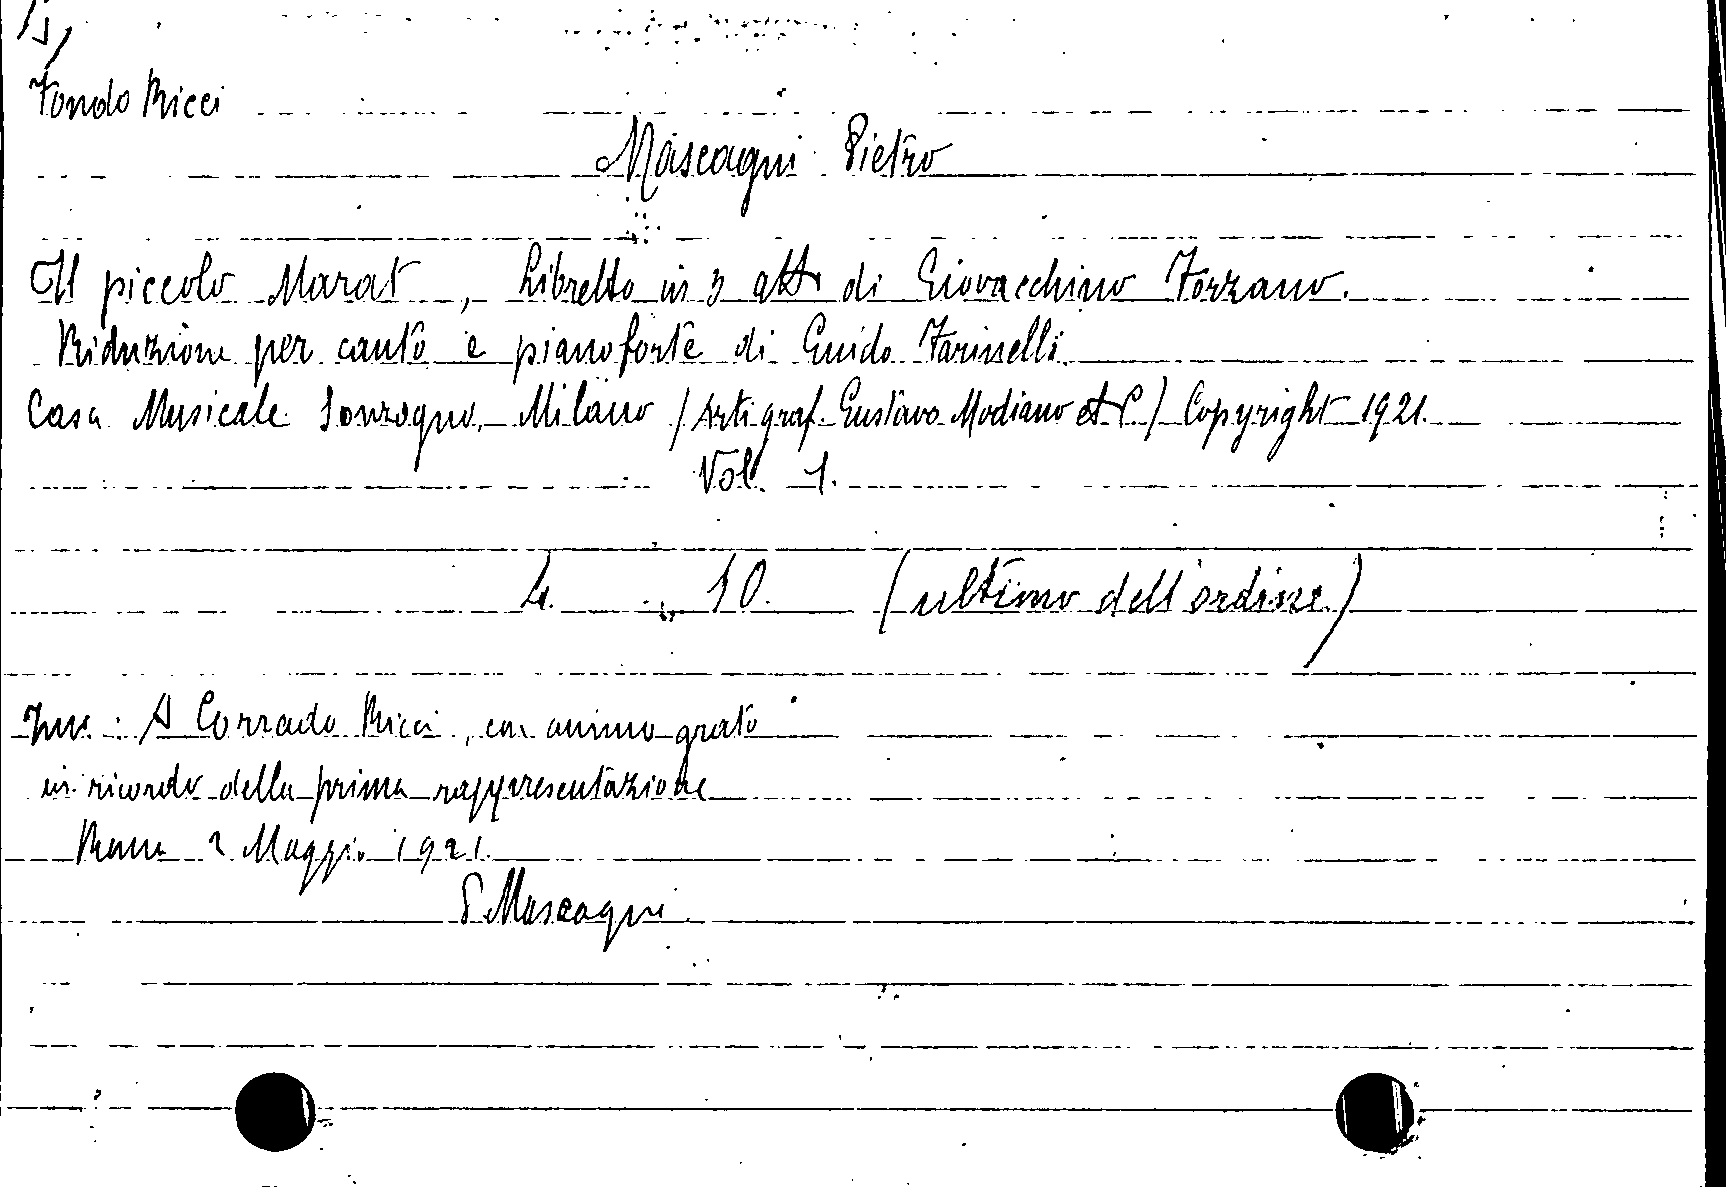 Fondo Ricci
Mascagni Pietro
Il piccolo Marat, Libretto in 3 atti di Giovacchino Forzano.
Riduzione per canto e pianoforte di Guido Farinelli.
Casa Musicale Sonzogno. Milano (Arti graf. Gustavo Modiano et C.) Copyright 1921.
Vol. 1.
10. (ultimo dell'ordine)
A Corrado Ricci, con animo grato
in ricordo della prima rappresentazione
Roma 2 Maggio 1921.
P Mascagni.